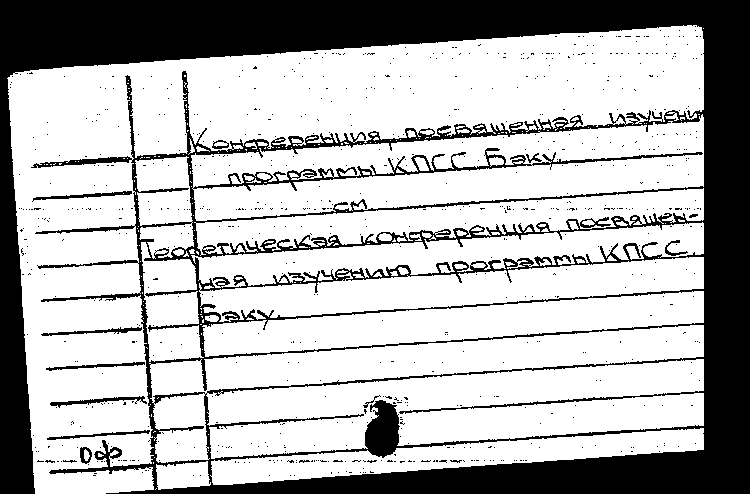 Конференция, посвященная изучени
программы КПСС. Баку.
см
Теоретическая конференция, посвящен-
ная изучению программы КПСС.
Баку.
Оф